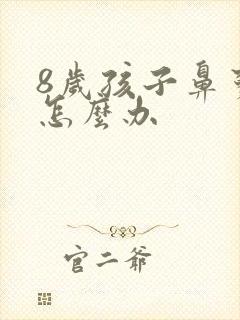 8歲孩子鼻
怎麼办
官二爺